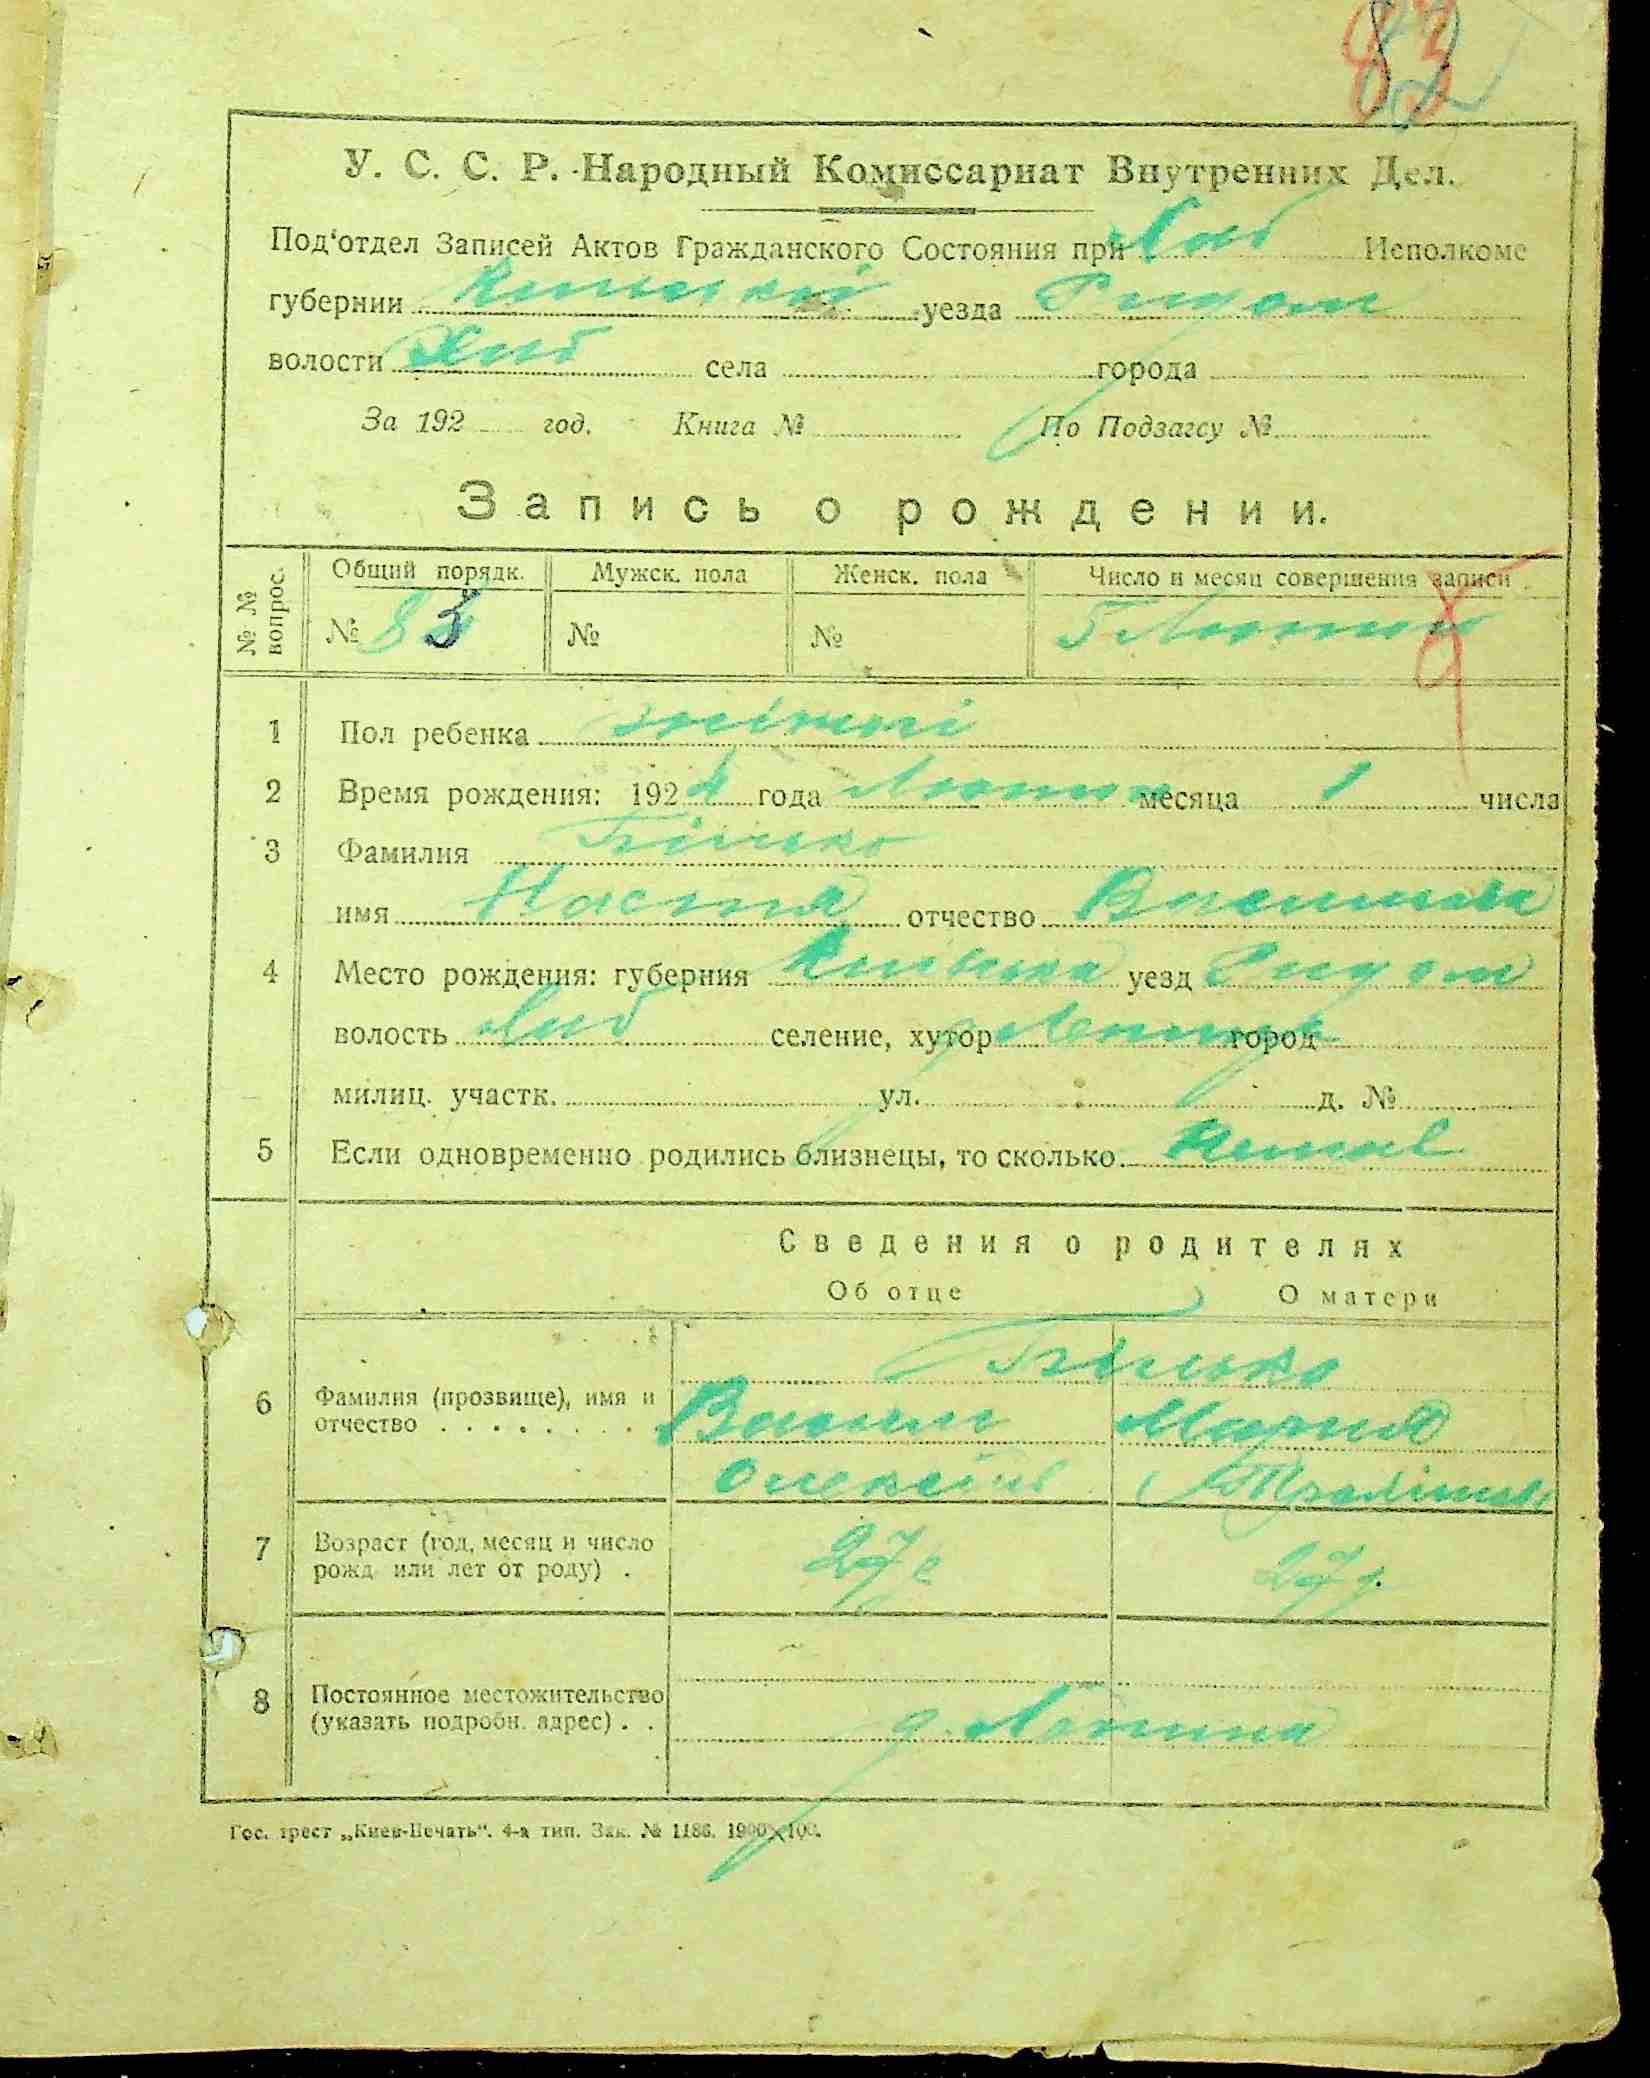 83
У. С. С. Р. Народный Комиссариат Внутренних Дел.
Под'отдел Записей Актов Гражданского Состояния при Хаб Исполкоме
губернии уезда
волости Хаб села города
За 192 год. Книга № По Подзагсу №
Запись о рождении.
№ № вопрос. Общий порядк. Мужск. пола Женск. пола Число и месяц совершения записи
№ 83 № № 5 Лютого
1 Пол ребенка жіночі
2 Время рождения: 1924 года Лютого месяца 1 числа
3 Фамилия
имя Настя отчество Василива
4 Место рождения: губерния уезд
волость Хаб селение, хутор город
милиц. участк. ул. д. №
5 Если одновременно родились близнецы, то сколько. Немає
Сведения о родителях
Об отце О матери
6 Фамилия (прозвище), имя и отчество
Василь Мария
Олексіив
7 Возраст (год, месяц и число рожд. или лет от роду) . 27 27
8 Постоянное местожительство (указать подробн. адрес) . .
Гос. трест „Киев-Печать“. 4-я тип. Зак. № 1186. 1900×100.